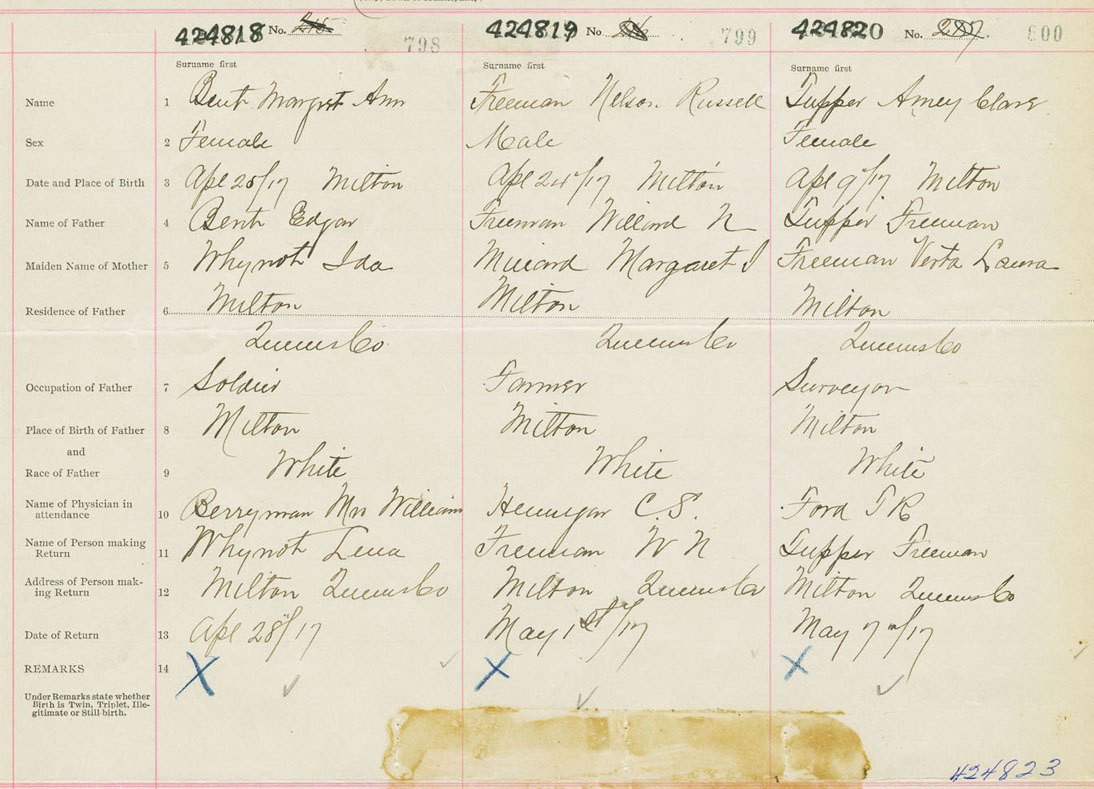 424818 No. 798 424819 No 799 424820 No. 800
Surname first Surname first Surname first
Name 1 Bent Margret Ann Freeman Nelson Russell Tupper Amey Clare
Sex 2 Female Male Female
Date and Place of Birth 3 Apl 28/17 Milton Apl 24/17 Milton Apl 9/17 Milton
Name of Father 4 Bent Edgar Freeman Willard N Tupper Freeman
Maiden Name of Mother 5 Whynot Ida Minard Margaret I Freeman Verta Laura
Residence of Father 6 Milton Milton Milton
Queens Co Queens Co Queens Co
Occupation of Father 7 Soldier Farmer Surveyor
Place of Birth of Father 8 Milton Milton Milton
and
Race of Father 9 White White White
Name of Physician in
attendance 10 Berryman Mrs William Hennigar C.S. Ford T R
Name of Person making
Return 11 Whynot Lena Freeman W N Tupper Freeman
Address of Person mak-
ing Return 12 Milton Queens Co Milton Queens Co Milton Queens Co
Date of Return 13 Apl 28/17 May 1st/17 May 7th/17
REMARKS 14 X X X
Under Remarks state whether
Birth is Twin, Triplet, Ille-
gitimate or Still-birth.
424823